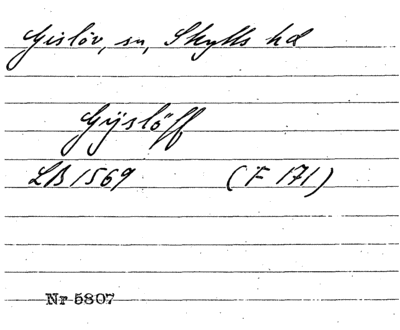 Gislöv, sn, Skytts hd
Gÿslöff
LB 1569 (F 171)
Nr 5807